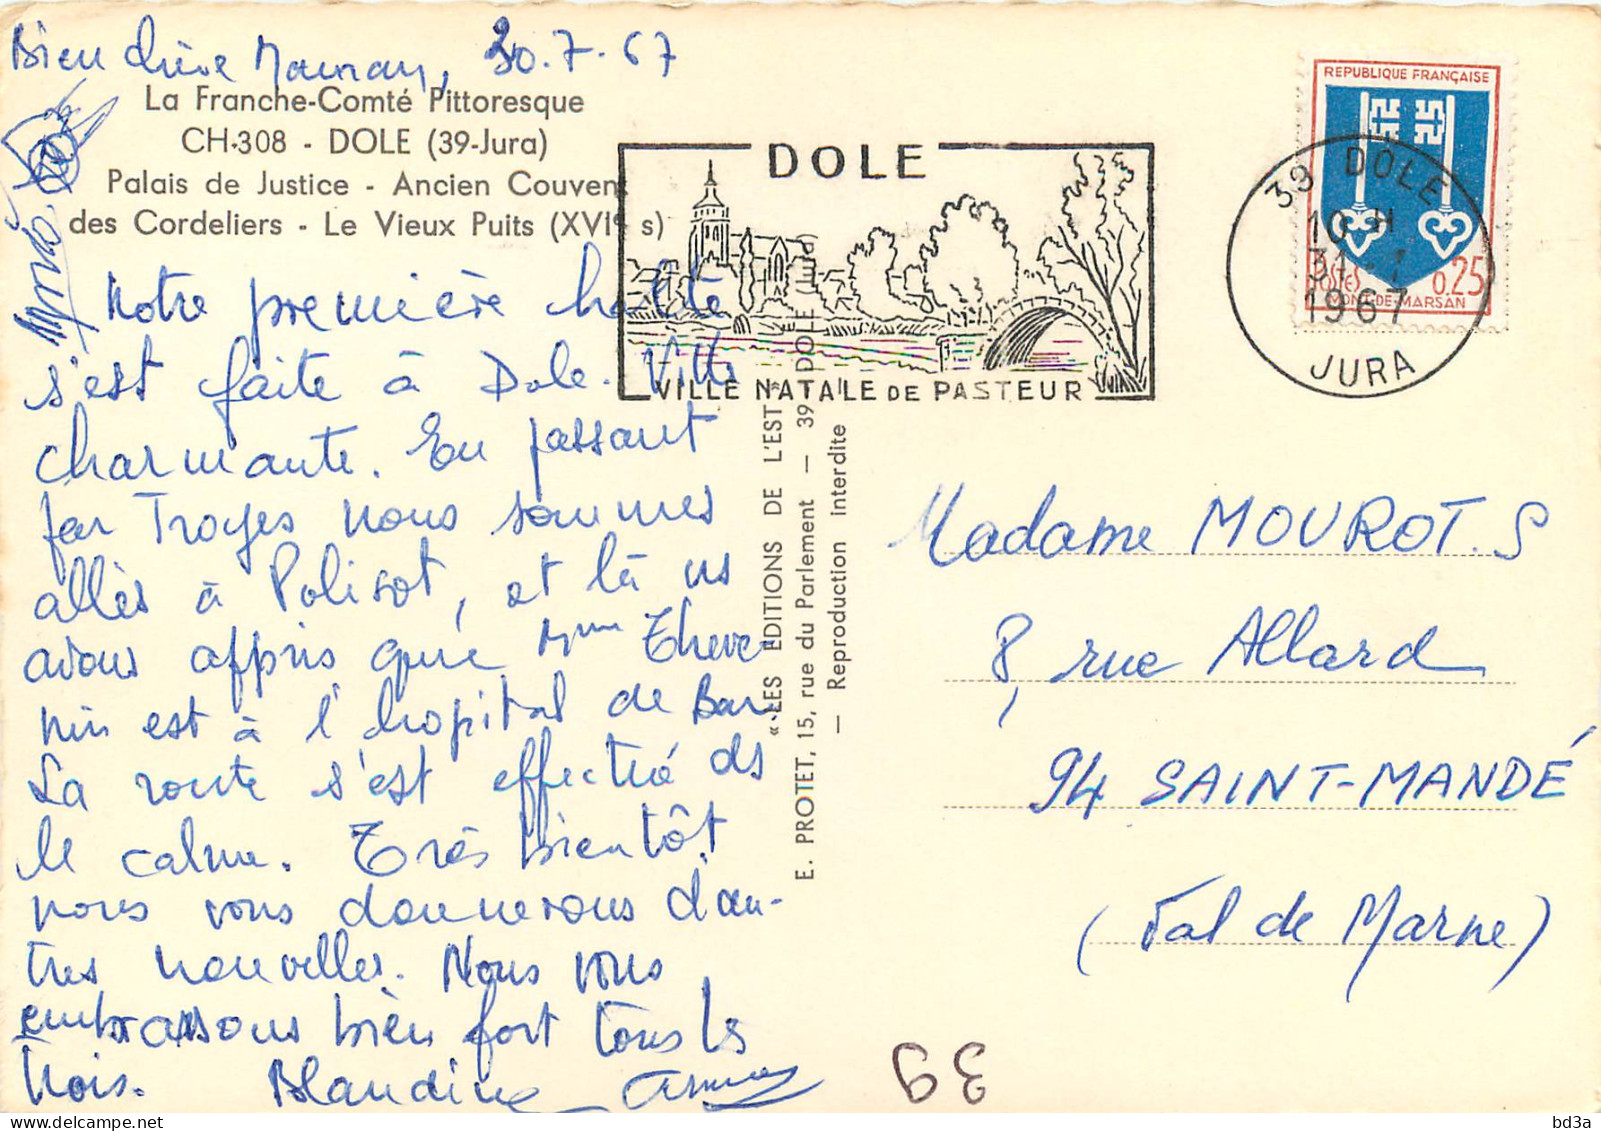 Bien chère Maman, 30.7.67
La Franche-Comté Pittoresque
CH-308 - DOLE (39-Jura)
Palais de Justice - Ancien Couvent
des Cordeliers - Le Vieux Puits (XVIe s)
Notre première halte
s'est faite à Dole. Ville
charmante. En passant
par Troyes nous sommes
allés à Polisot, et là ns
avons appris que Mme Theve-
nin est à l'hopital de Bar.
La route s'est effectué ds
le calme. Très bientôt
nous vous donnerons d'au-
tres nouvelles. Nous vous
embrassons bien fort tous les
trois. Blandine
DOLE
VILLE NATALE DE PASTEUR
REPUBLIQUE FRANÇAISE
POSTES 0,25
MONT-DE-MARSAN
39 DOLE
10 H
31-7
1967
JURA
«LES EDITIONS DE L'EST»
E. PROTET, 15, rue du Parlement — 39 DOLE (Jura)
— Reproduction interdite
Madame MOUROT. S
8, rue Allard
94 SAINT-MANDÉ
(Val de Marne)
39
bd3a